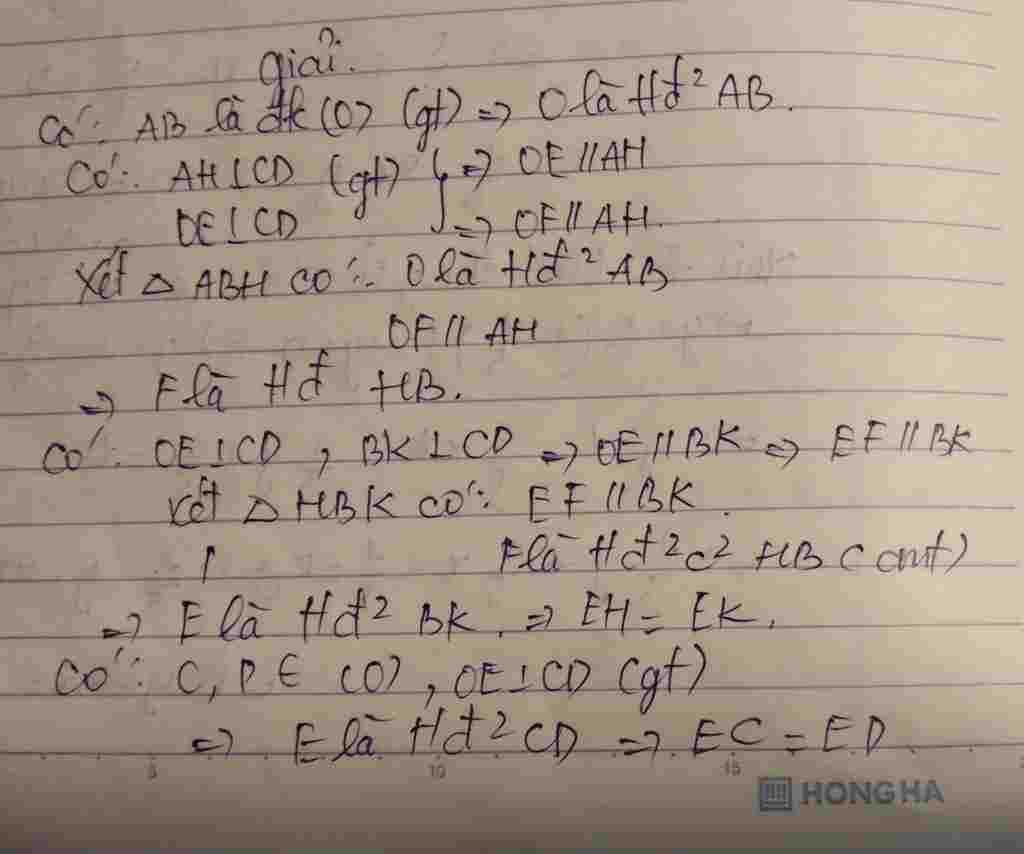 Giải.
Có: AB là đk (O) (gt) => O là tđ² AB.
Có: AH ⊥ CD (gt) } => OE // AH
OE ⊥ CD => OF // AH.
Xét △ ABH có: O là tđ² AB
OF // AH
=> F là tđ HB.
Có: OE ⊥ CD, BK ⊥ CD => OE // BK => EF // BK
Xét △ HBK có: EF // BK.
F là tđ² c² HB (cmt)
=> E là tđ² BK. => EH = EK.
Có: C, D ∈ (O), OE ⊥ CD (gt)
=> E là tđ² CD => EC = ED
5 10 15
HONG HA